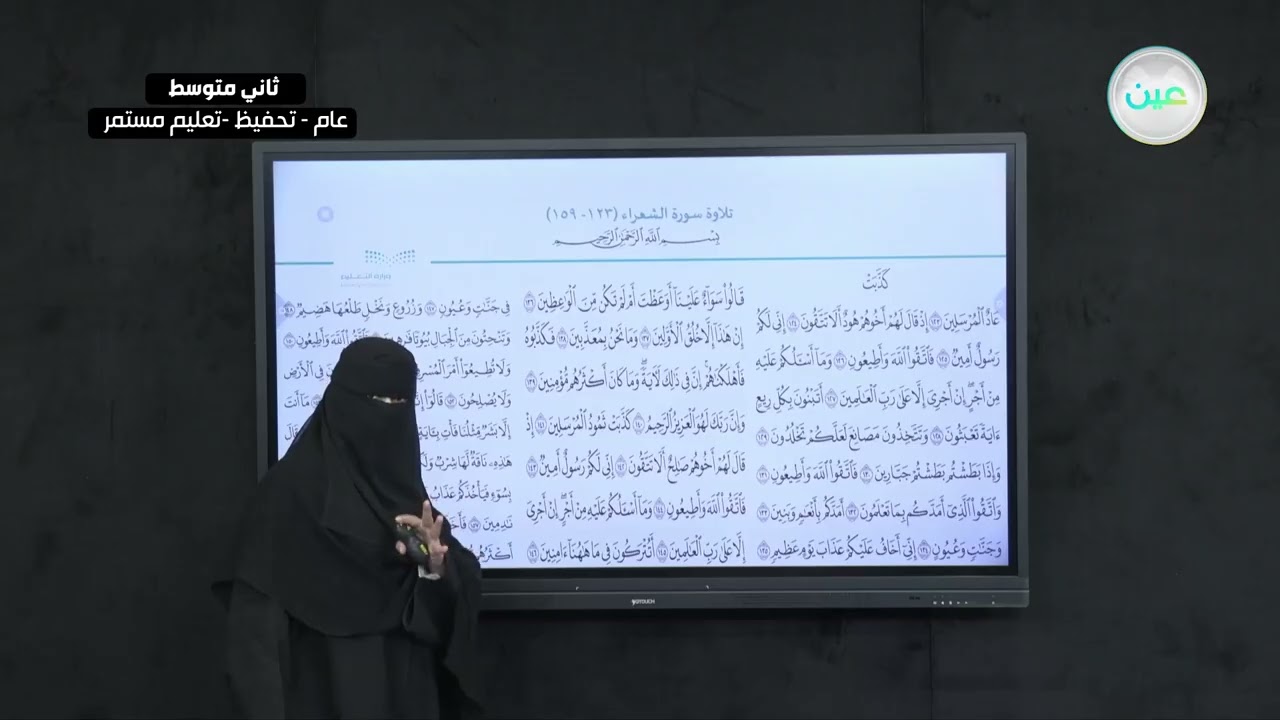 ثاني متوسط
عام - تحفيظ -تعليم مستمر
عين
تلاوة سورة الشعراء (١٢٣- ١٥٩)
بِسْمِ اللَّهِ الرَّحْمَٰنِ الرَّحِيمِ
وزارة التعليم
كَذَّبَتْ
عَادٌ الْمُرْسَلِينَ ١٢٣ إِذْ قَالَ لَهُمْ أَخُوهُمْ هُودٌ أَلَا تَتَّقُونَ ١٢٤ إِنِّي لَكُمْ
رَسُولٌ أَمِينٌ ١٢٥ فَاتَّقُوا اللَّهَ وَأَطِيعُونِ ١٢٦ وَمَا أَسْـَٔلُكُمْ عَلَيْهِ
مِنْ أَجْرٍ إِنْ أَجْرِيَ إِلَّا عَلَىٰ رَبِّ الْعَٰلَمِينَ ١٢٧ أَتَبْنُونَ بِكُلِّ رِيعٍ
ءَايَةً تَعْبَثُونَ ١٢٨ وَتَتَّخِذُونَ مَصَانِعَ لَعَلَّكُمْ تَخْلُدُونَ ١٢٩
وَإِذَا بَطَشْتُم بَطَشْتُمْ جَبَّارِينَ ١٣٠ فَاتَّقُوا اللَّهَ وَأَطِيعُونِ ١٣١
وَاتَّقُوا الَّذِي أَمَدَّكُم بِمَا تَعْلَمُونَ ١٣٢ أَمَدَّكُم بِأَنْعَٰمٍ وَبَنِينَ ١٣٣
وَجَنَّٰتٍ وَعُيُونٍ ١٣٤ إِنِّي أَخَافُ عَلَيْكُمْ عَذَابَ يَوْمٍ عَظِيمٍ ١٣٥
قَالُوا سَوَاءٌ عَلَيْنَا أَوَعَظْتَ أَمْ لَمْ تَكُن مِّنَ الْوَٰعِظِينَ ١٣٦
إِنْ هَٰذَا إِلَّا خُلُقُ الْأَوَّلِينَ ١٣٧ وَمَا نَحْنُ بِمُعَذَّبِينَ ١٣٨ فَكَذَّبُوهُ
فَأَهْلَكْنَٰهُمْ إِنَّ فِي ذَٰلِكَ لَآيَةً وَمَا كَانَ أَكْثَرُهُم مُّؤْمِنِينَ ١٣٩
وَإِنَّ رَبَّكَ لَهُوَ الْعَزِيزُ الرَّحِيمُ ١٤٠ كَذَّبَتْ ثَمُودُ الْمُرْسَلِينَ ١٤١ إِذْ
قَالَ لَهُمْ أَخُوهُمْ صَٰلِحٌ أَلَا تَتَّقُونَ ١٤٢ إِنِّي لَكُمْ رَسُولٌ أَمِينٌ ١٤٣
فَاتَّقُوا اللَّهَ وَأَطِيعُونِ ١٤٤ وَمَا أَسْـَٔلُكُمْ عَلَيْهِ مِنْ أَجْرٍ إِنْ أَجْرِيَ
إِلَّا عَلَىٰ رَبِّ الْعَٰلَمِينَ ١٤٥ أَتُتْرَكُونَ فِي مَا هَٰهُنَا ءَامِنِينَ ١٤٦
فِي جَنَّٰتٍ وَعُيُونٍ ١٤٧ وَزُرُوعٍ وَنَخْلٍ طَلْعُهَا هَضِيمٌ ١٤٨
وَتَنْحِتُونَ مِنَ الْجِبَالِ بُيُوتًا فَٰرِهِينَ ١٤٩ فَاتَّقُوا اللَّهَ وَأَطِيعُونِ ١٥٠
وَلَا تُطِيعُوا أَمْرَ فِي الْأَرْضِ
وَلَا يُصْلِحُونَ ١٥٢ قَالُوا مَا أَنتَ
إِلَّا بَشَرٌ مِّثْلُنَا فَأْتِ بِـَٔايَةٍ قَالَ
هَٰذِهِ نَاقَةٌ لَّهَا شِرْبٌ
بِسُوءٍ فَيَأْخُذَكُمْ عَذَابُ
نَٰدِمِينَ ١٥٧
أَكْثَرُهُم